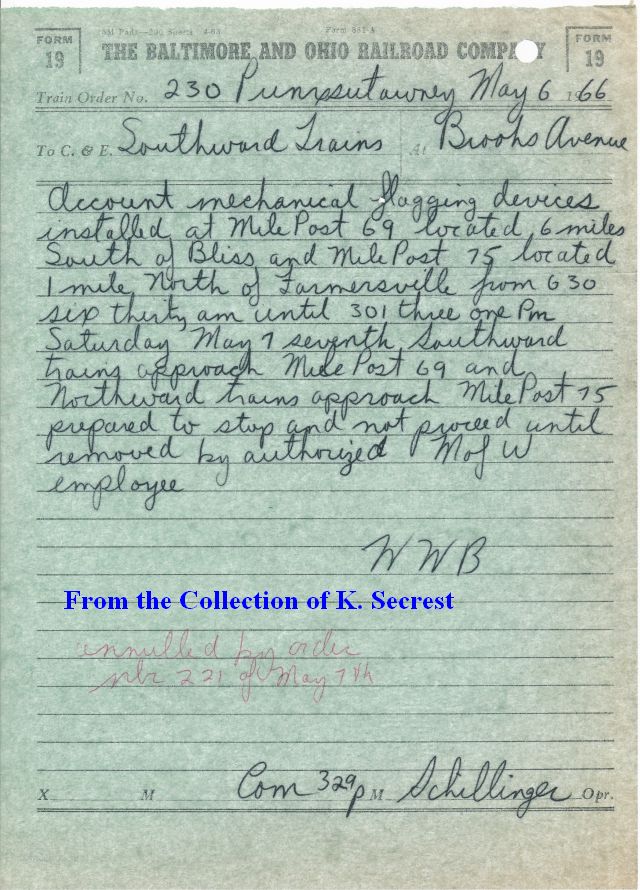 FORM 19
5M Pads—200 Sheets 4-63 Form 861-A
THE BALTIMORE AND OHIO RAILROAD COMPANY
FORM 19
Train Order No. 230 Punxsutawney May 6 1966
To C. & E. Southward Trains At Brooks Avenue
Account mechanical flagging devices
installed at Mile Post 69 located 6 miles
South of Bliss and Mile Post 75 located
1 mile North of Farmersville from 630
six thirty am until 301 three one Pm
Saturday May 7 seventh Southward
trains approach Mile Post 69 and
Northward trains approach Mile Post 75
prepared to stop and not proceed until
removed by authorized M of W
employee
W W B
From the Collection of K. Secrest
annulled by order
nbr 221 of May 7th
X M Com 329p M Schillinger Opr.